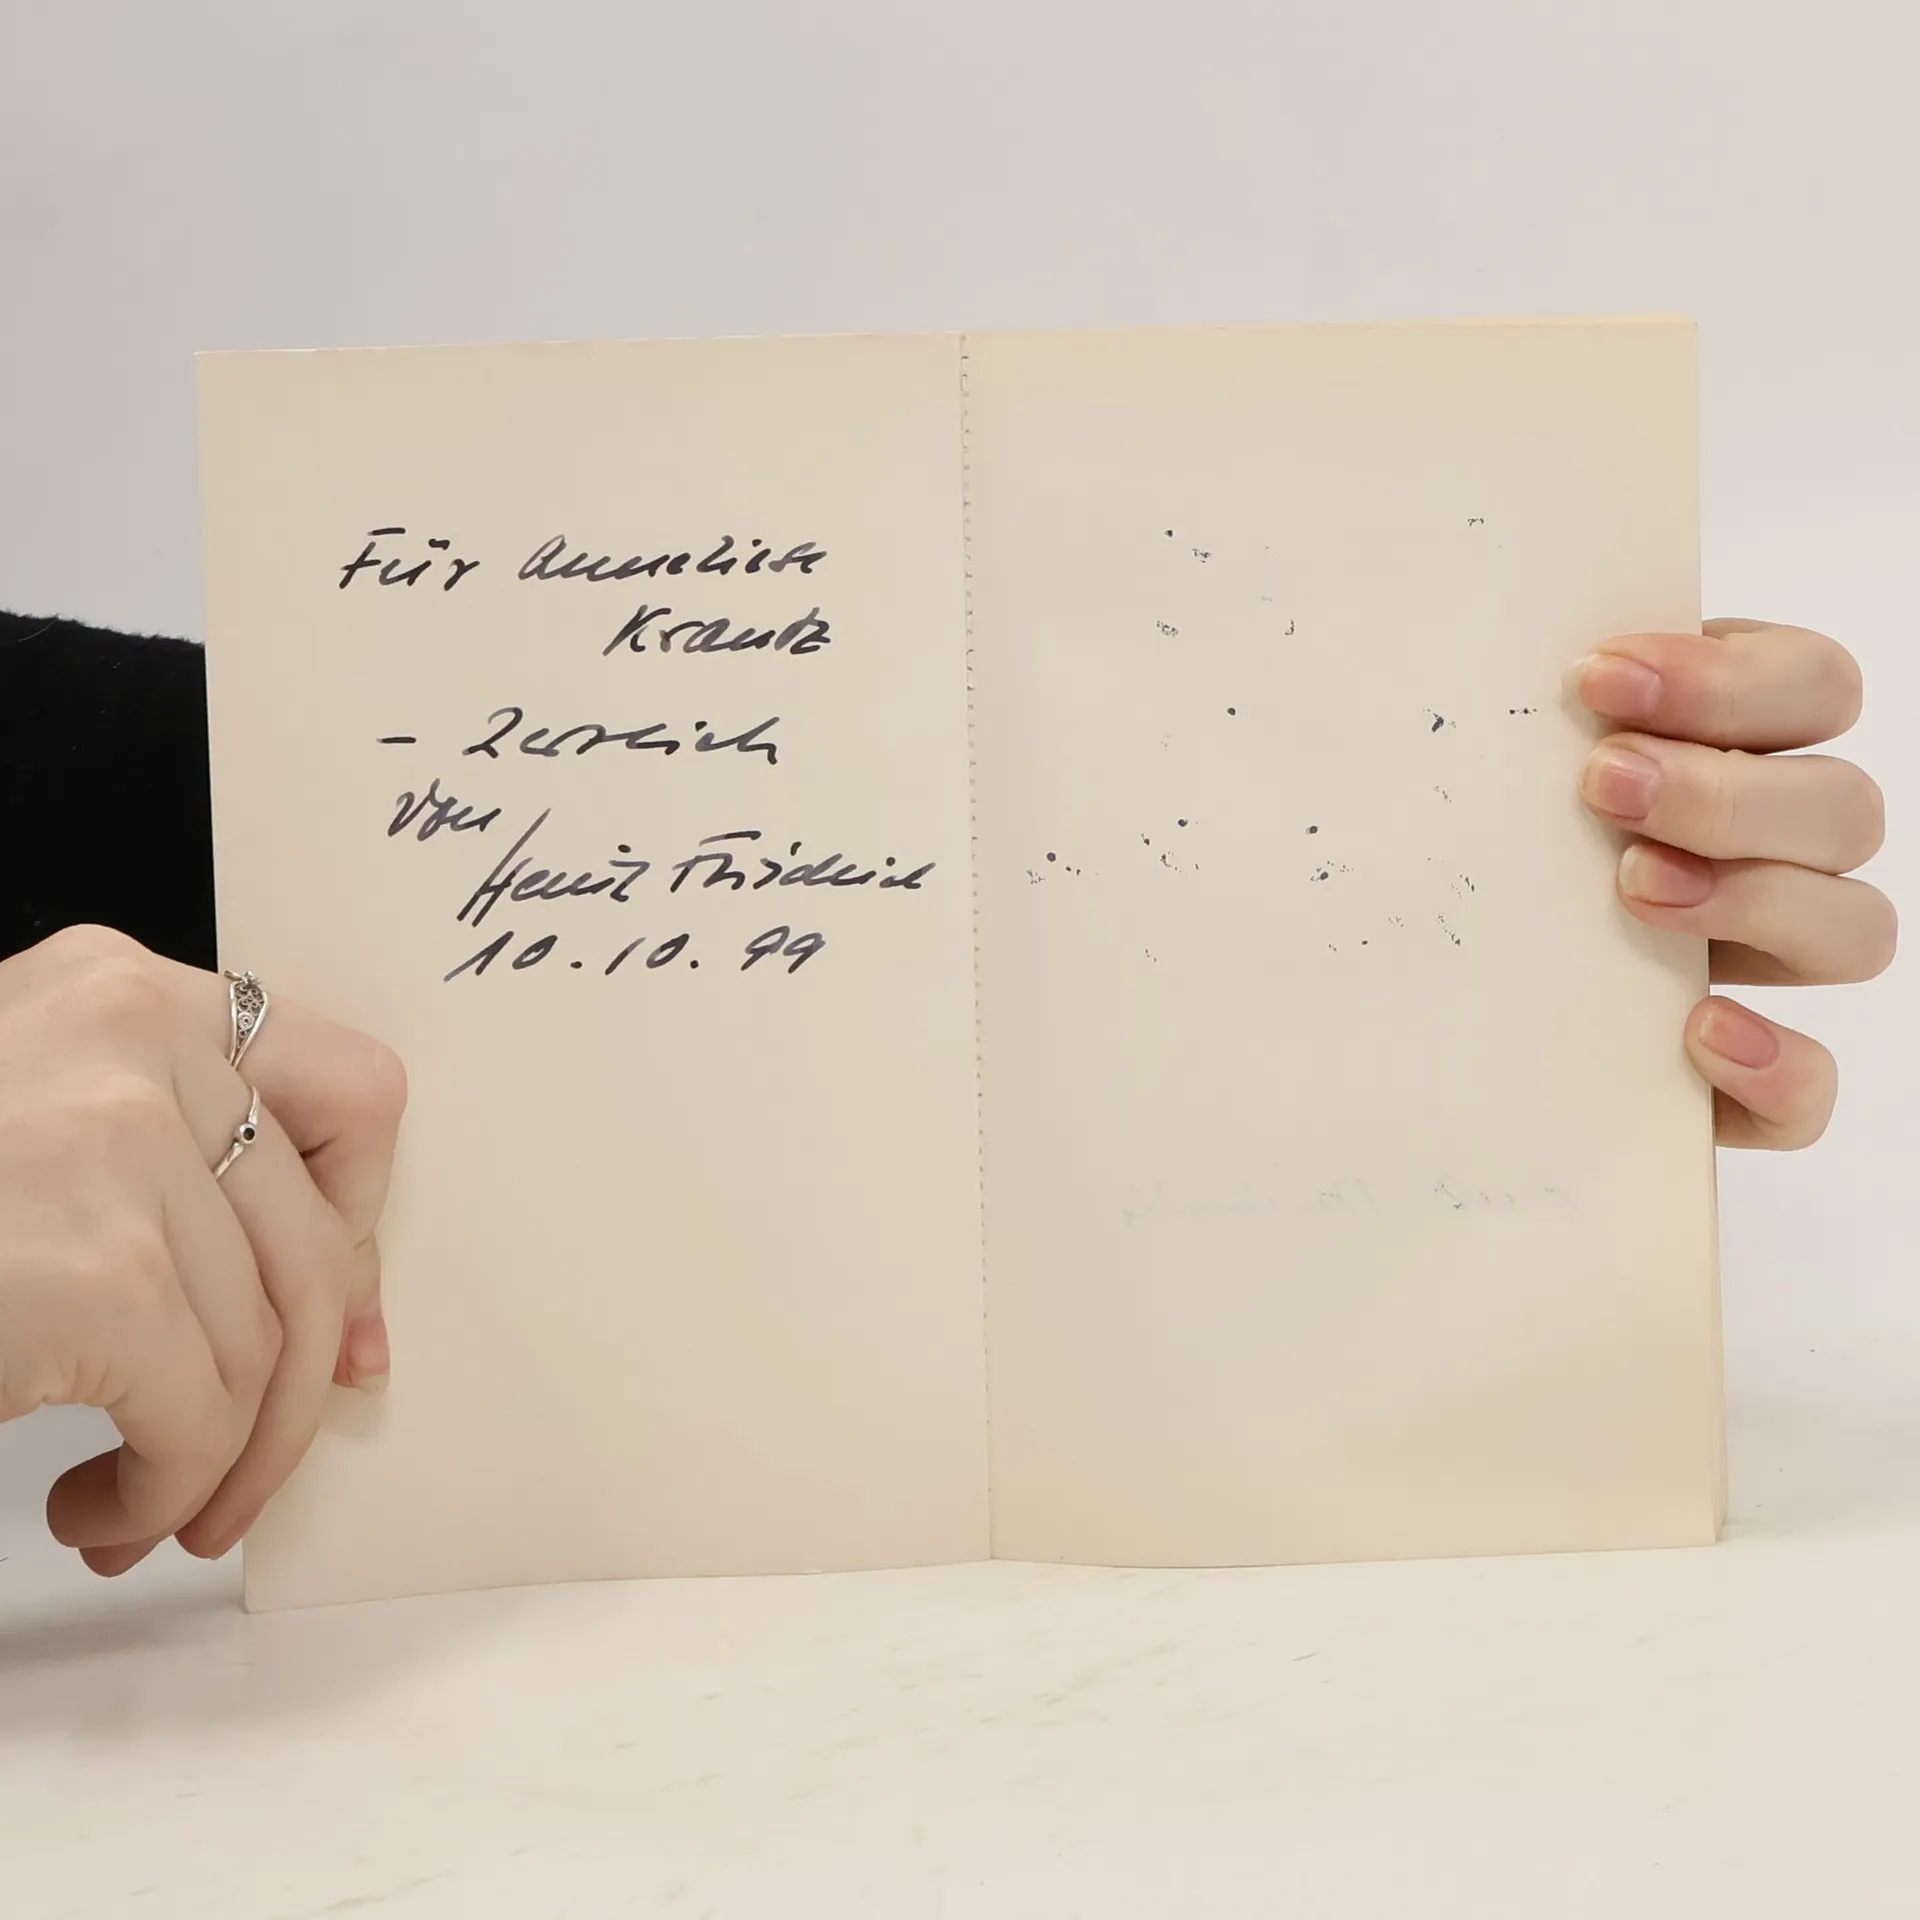 Für Anneliese
Krautz
– Herzlich
von
Heinz Friedrich
10.10.99